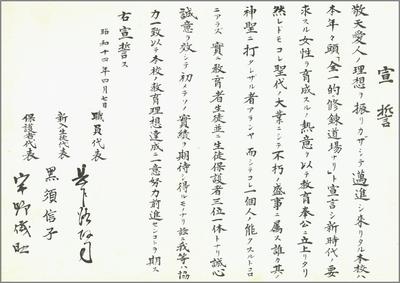 宣誓
敬天愛人ノ理想ヲ振リカザシテ邁進シ来リタル本校ハ
本年々頭「全一的修錬道場ナリ」ト宣言シ新時代ノ要
求スル女性ヲ育成スルノ熱意ヲ以テ教育奉公ニ立上リタリ
然レドモコレ聖代ノ大業ニシテ不朽ノ盛事ニ属ス誰カ其ノ
神聖ニ打タレザル者アランヤ而シテコレ一個人ノ能クスルトコロ
ニアラズ實ニ教育者生徒並ニ生徒保護者三位一体トナリ誠心
誠意ヲ效シテ初メテソノ實績ヲ期待シ得ルモノナリ茲ニ我等ハ協
力一致以テ本校ノ教育理想達成ニ一意努力前進センコトヲ期ス
右宣誓ス
昭和十四年四月七日
職員代表
新入生代表 黒須信子
保護者代表